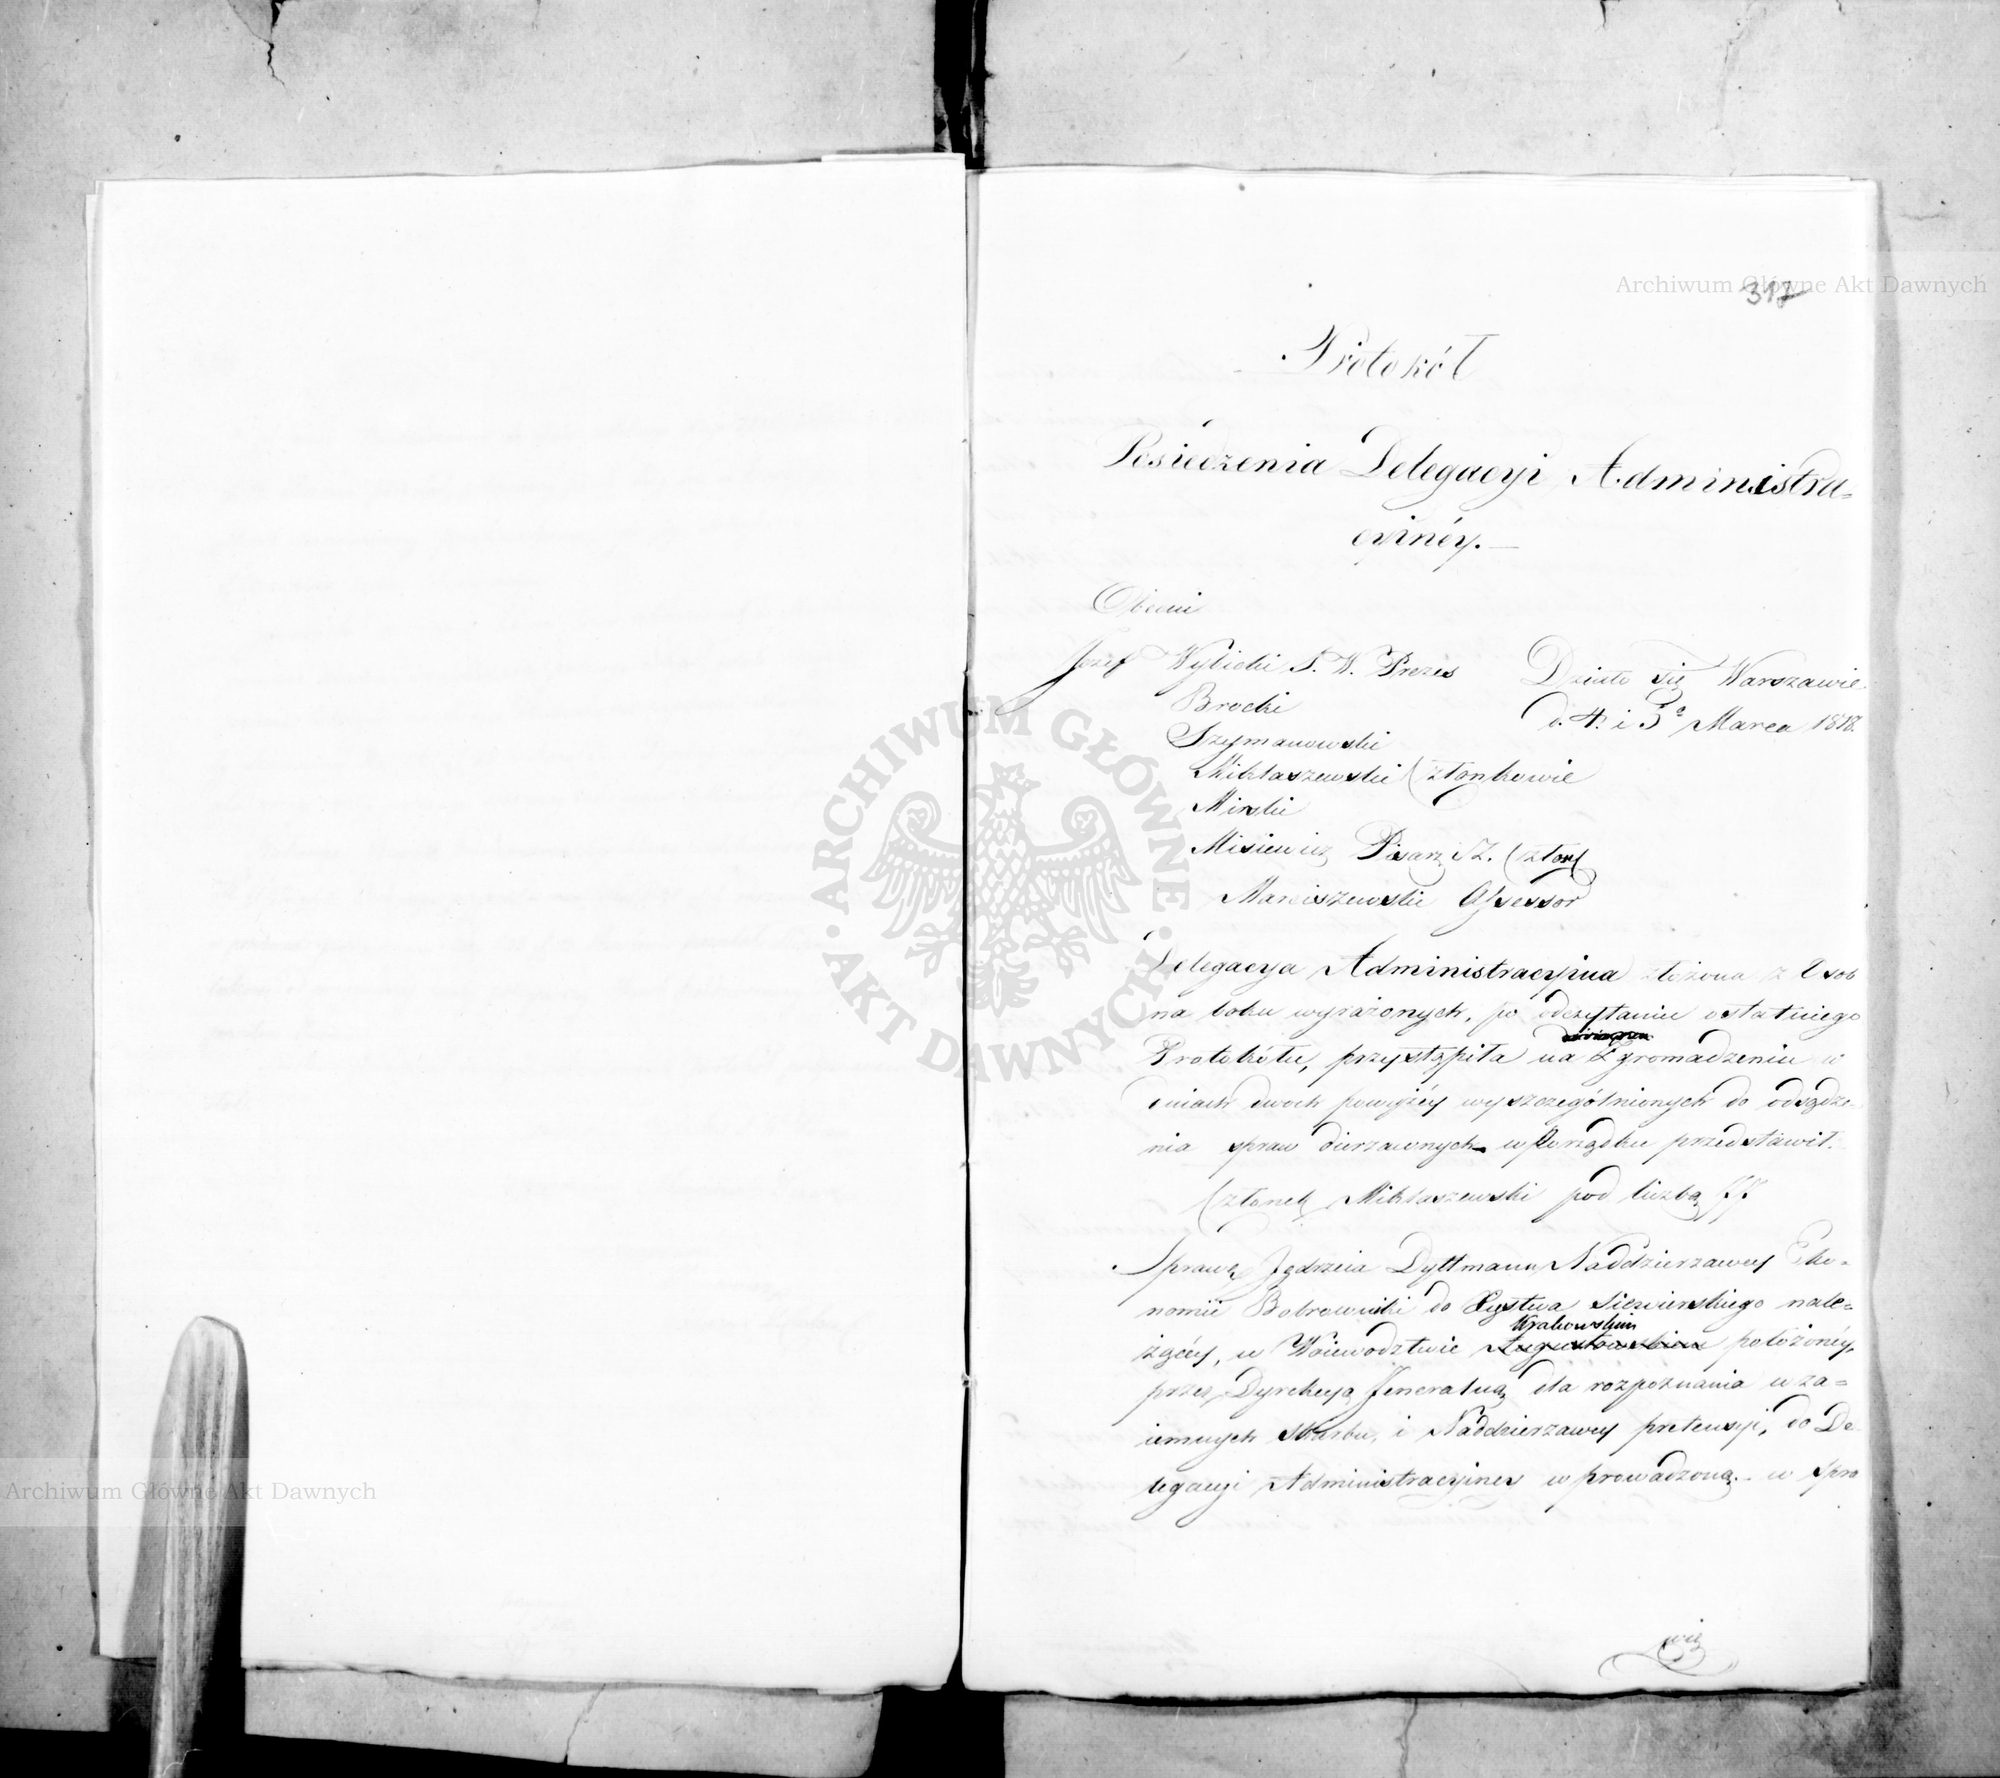 Archiwum Główne Akt Dawnych
317
Protokół
Posiedzenia Delegacyi Administra=
cyinéy.
Obecni
Jozef Wybicki S. W. Prezes
Działo się w Warszawie
d. 4. i 5º Marca 1818.
Brocki
Szymanowski
Miklaszewski Członkowie
Minski
Misiewicz Pisarz i Z. Człon.
Marciszewski Assessor
Delegacya Administracyina złożona z Osob
na boku wyrażonych, po odczytaniu ostatniego
Protokółu, przystąpiła na Zgromadzeniu w
dniach dwoch powyżéy wyszczególnionych do odsądze=
nia spraw dzierzawnych w Porządku przedstawił.
Członek Miklaszewski pod liczbą
Sprawę Jędrzeia Dyttmann Naddzierzawcy Eko=
nomii Bobrowniki do Xęstwa Siewierskiego nale=
Krakowskim
żącéy, w Woiewodztwie Augustowskim położonéy,
przez Dyrekcyą Jeneralną dla rozpoznania wza=
iemnych Skarbu, i Naddzierzawcy pretensyi, do De
legacyi Administracyiney wprowadzoną.- w spra
wie
ARCHIWUM GŁÓWNE AKT DAWNYCH
Archiwum Główne Akt Dawnych